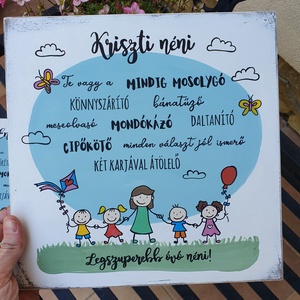 Kriszti néni
Te vagy a MINDIG MOSOLYGÓ
KÖNNYSZÁRÍTÓ bánatűző
meseolvasó MONDÓKÁZÓ DALTANÍTÓ
CIPŐKÖTŐ minden választ jól ismerő
KÉT KARJÁVAL ÁTÖLELŐ
Legszuperebb óvó néni!